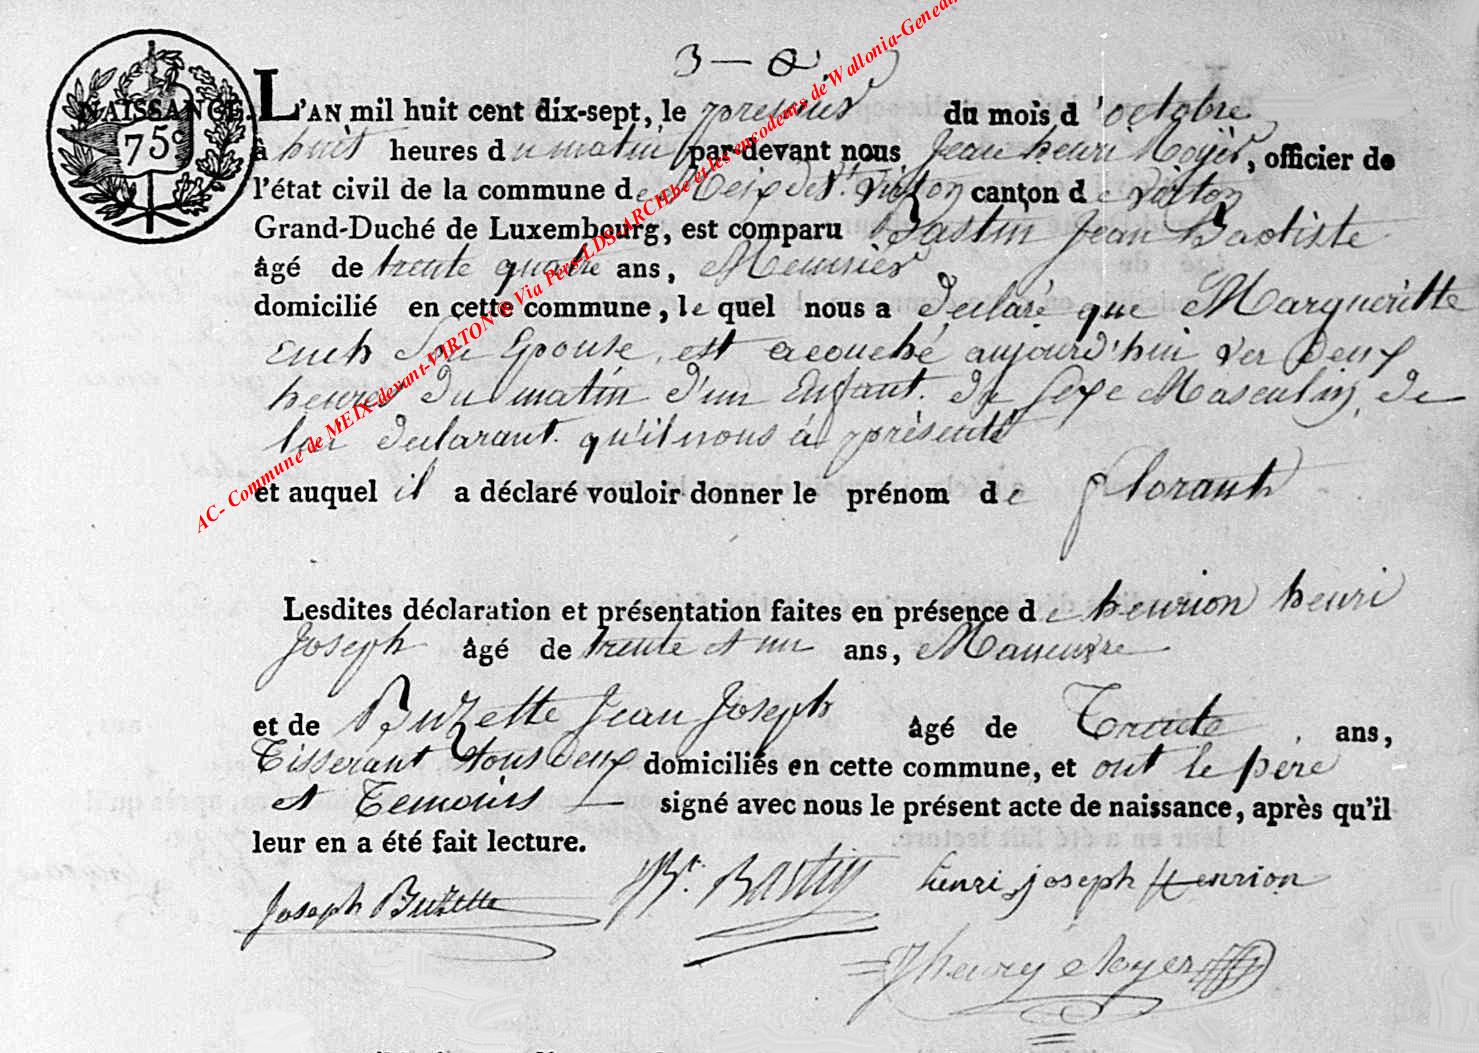 NAISSANCE.
75c
L'AN mil huit cent dix-sept, le premier du mois d'octobre
à huit heures du matin par-devant nous Jean henri Noyër, officier de
l'état civil de la commune de Meix devt. Virton canton de Virton
Grand-Duché de Luxembourg, est comparu Bastin Jean Baptiste
âgé de trente quatre ans, Meunier
domicilié en cette commune, le quel nous a declaré que Margueritte
son Epouse, est acouché aujourd'hui ver deux
heures du matin d'un Enfant du sexe Masculin, de
lui declarant qu'il nous à présenté
et auquel il a déclaré vouloir donner le prénom de florant
Lesdites déclaration et présentation faites en présence de henrion henri
Joseph âgé de trente et un ans, Maneuvre
et de Buzette Jean Joseph âgé de Trente ans,
Tisserant tous deux domiciliés en cette commune, et ont le père
et Temoins signé avec nous le présent acte de naissance, après qu'il
leur en a été fait lecture.
Joseph Buzette Bt. Bastin henri joseph Henrion
Jhenry Noyer
AC- Commune de MEIX devant-VIRTON © Via Pers LDS-ARCH.be et les encodeurs de Wallonia-Geneal